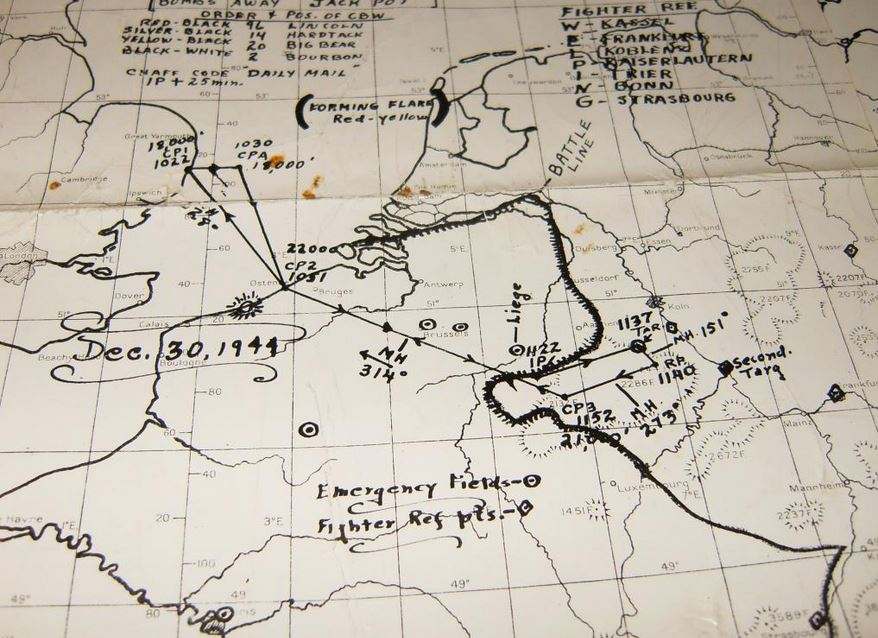 BOMBS AWAY "JACK POT"
ORDER & POS. OF CBW
RED-BLACK 96 LINCOLN
SILVER-BLACK 14 HARDTACK
YELLOW-BLACK 20 BIG BEAR
BLACK-WHITE 2 BOURBON
CHAFF CODE "DAILY MAIL"
IP + 25 min.
FIGHTER REF
W - KASSEL
E - FRANKFURT
L - KOBLENZ
P - KAISERLAUTERN
I - TRIER
N - BONN
G - STRASBOURG
(FORMING FLARE
Red-yellow)
BATTLE
LINE
Great Yarmouth
18,000'
CP1
1022
1030
CPA
18,000'
Cambridge
Ipswich
Amsterdam
Osnabruck
Munster
London
22000
CP2
1051
Ostend
Bruges
Antwerp
Dover
Calais
Boulogne
Brussels
Duisberg
Essen
Dortmund
Dusseldorf
Koln
Liege
Dec. 30, 1944
MH
314°
H22
IP
1137
TAR
MH 151°
R.P.
1140
Second.
Targ
CP3
1152
21,000'
MH
273°
2286F
Frankfurt
Mainz
2672F
Mannheim
2237F
Luxembourg
1451F
Emergency Fields-
Fighter Ref pts.-
Le Havre
1°E
3°E
5°E
7°E
49°
51°
53°
3589F